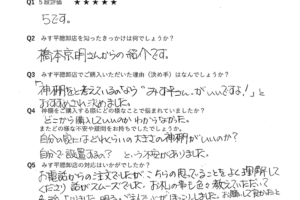 Q1 5段評価 ★★★★★
5です。
Q2 みす平總卸店を知ったきっかけは何でしょうか?
橋本京明さんからの紹介です。
Q3 みす平總卸店でご購入いただいた理由(決め手)はなんでしょうか?
「神棚を考えているのなら、みす平さんがいいですよ!」と
おすすめされ決めました。
Q4 神棚をご購入する際にどの様なことで悩まれていましたか?
どこから購入していいのかわからなかった。
またどの様な不安や疑問をお持ちでしたでしょうか。
自分の家にはどれくらいの大きさの神棚がいいのか?
自分で設置するの? という不安がありました。
Q5 みす平總卸店の対応はいかがでしたか?
お電話からの注文でしたが、こちらの思っていることをよく理解して
くださり 話がスムーズでした。お札の事も色々教えていただいて